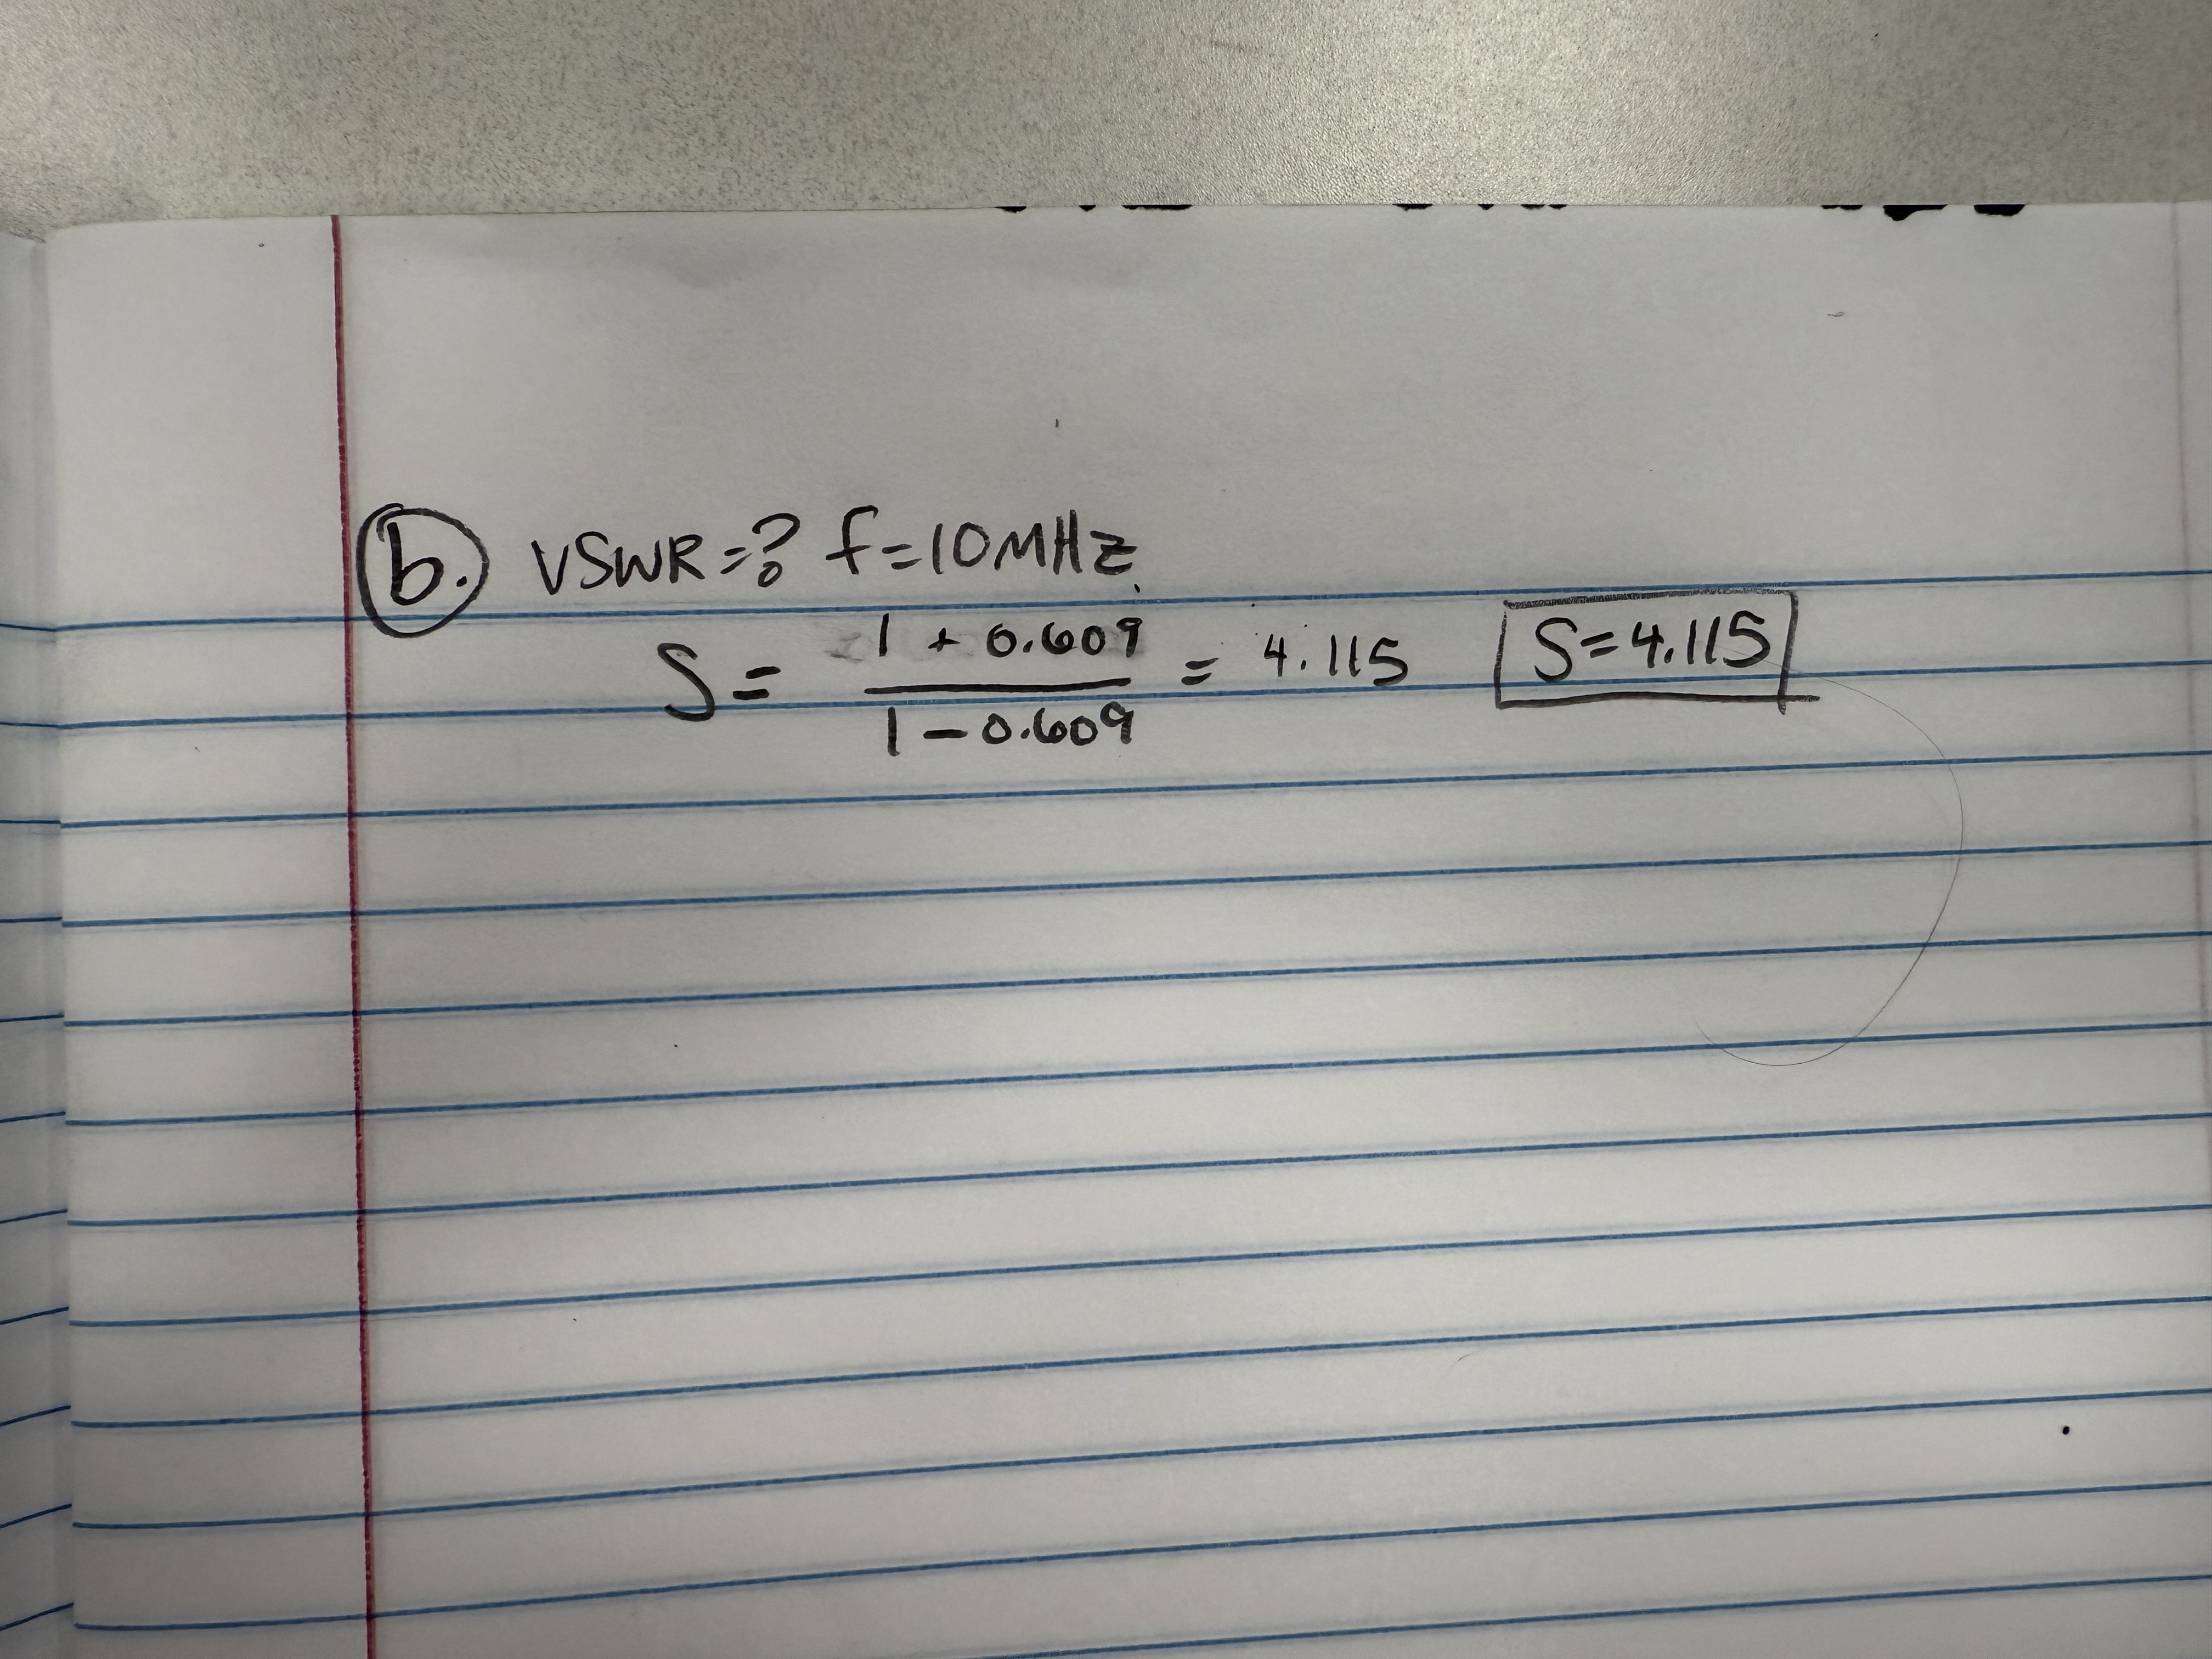 b. VSWR=? f=10MHz
S = 1 + 0.609 / 1 - 0.609 = 4.115 S=4.115